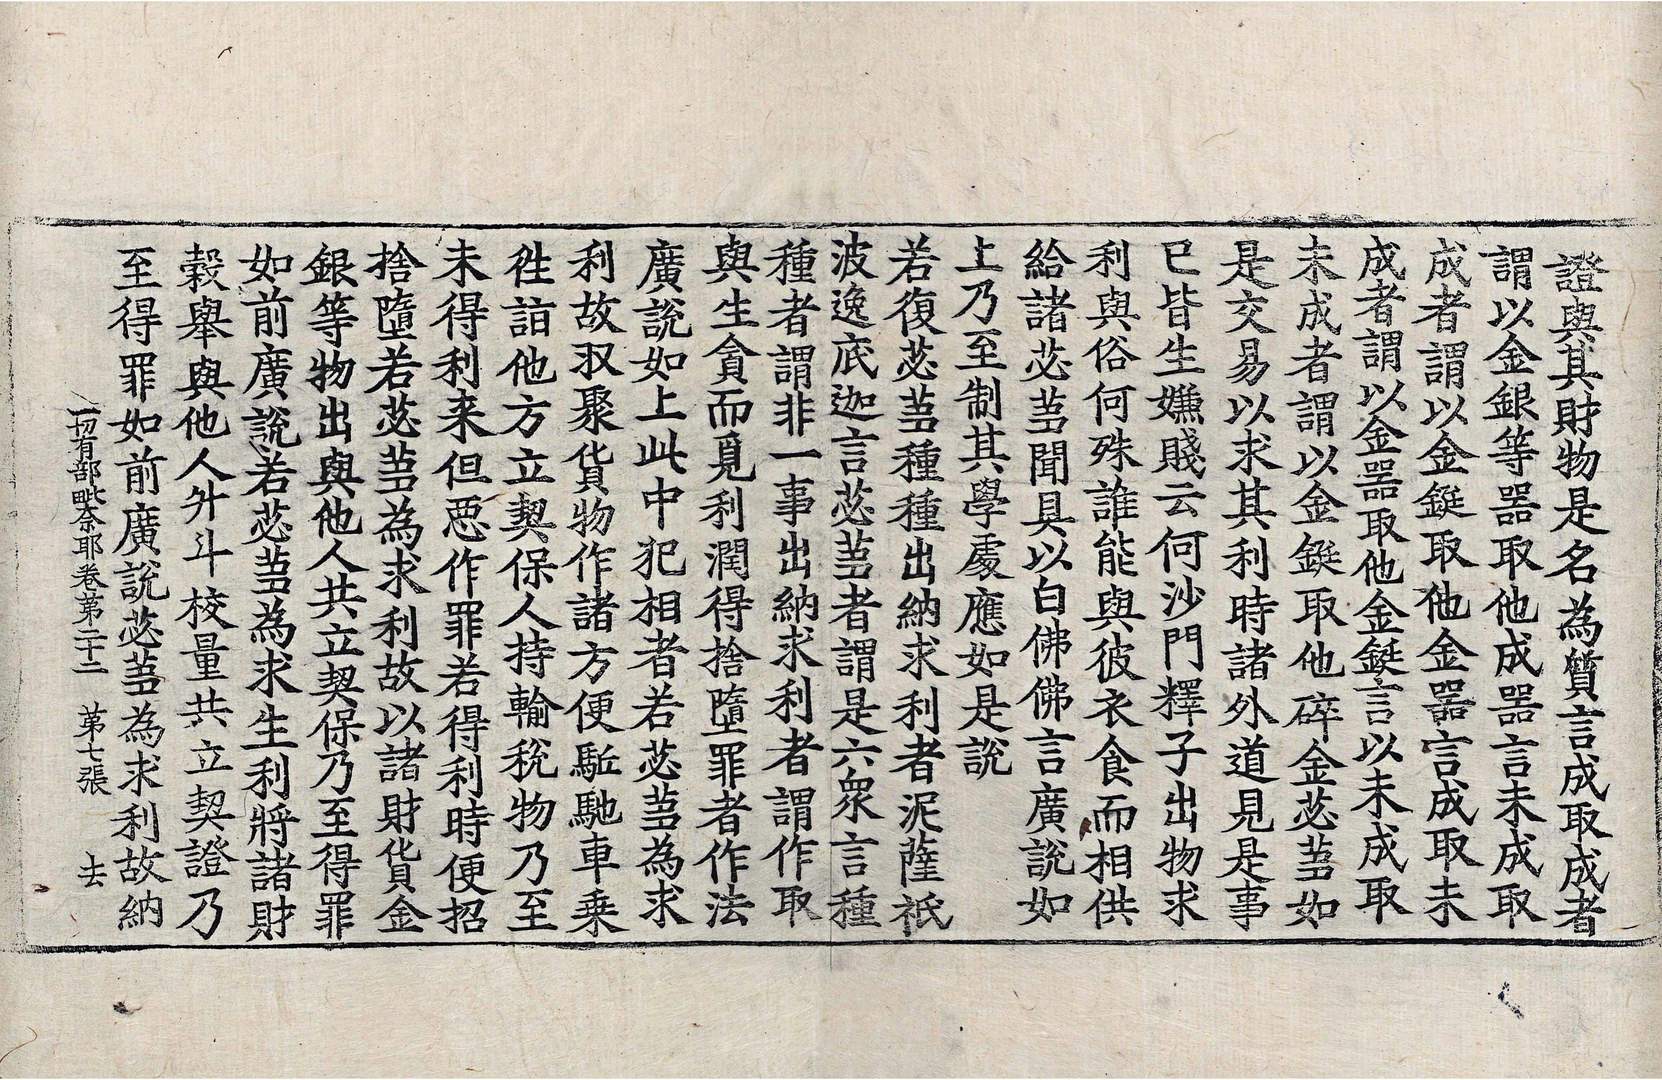 證與其財物是名為質言成取成者
謂以金銀等器取他成器言未成取
成者謂以金鋌取他金器言成取未
成者謂以金器取他金鋌言以未成取
未成者謂以金鋌取他碎金苾蒭如
是交易以求其利時諸外道見是事
已皆生嫌賤云何沙門釋子出物求
利與俗何殊誰能與彼衣食而相供
給諸苾蒭聞具以白佛佛言廣說如
上乃至制其學處應如是說
若復苾蒭種種出納求利者泥薩祇
波逸底迦言苾蒭者謂是六眾言種
種者謂非一事出納求利者謂作取
與生貪而覓利潤得捨墮罪者作法
廣說如上此中犯相者若苾蒭為求
利故収聚貨物作諸方便駈馳車乗
徃詣他方立契保人持輸稅物乃至
未得利来但惡作罪若得利時便招
捨墮若苾蒭為求利故以諸財貨金
銀等物出與他人共立契保乃至得罪
如前廣說若苾蒭為求生利將諸財
穀舉與他人升斗校量共立契證乃
至得罪如前廣說苾蒭為求利故納
一切有部毗奈耶卷第二十二　第七張　去